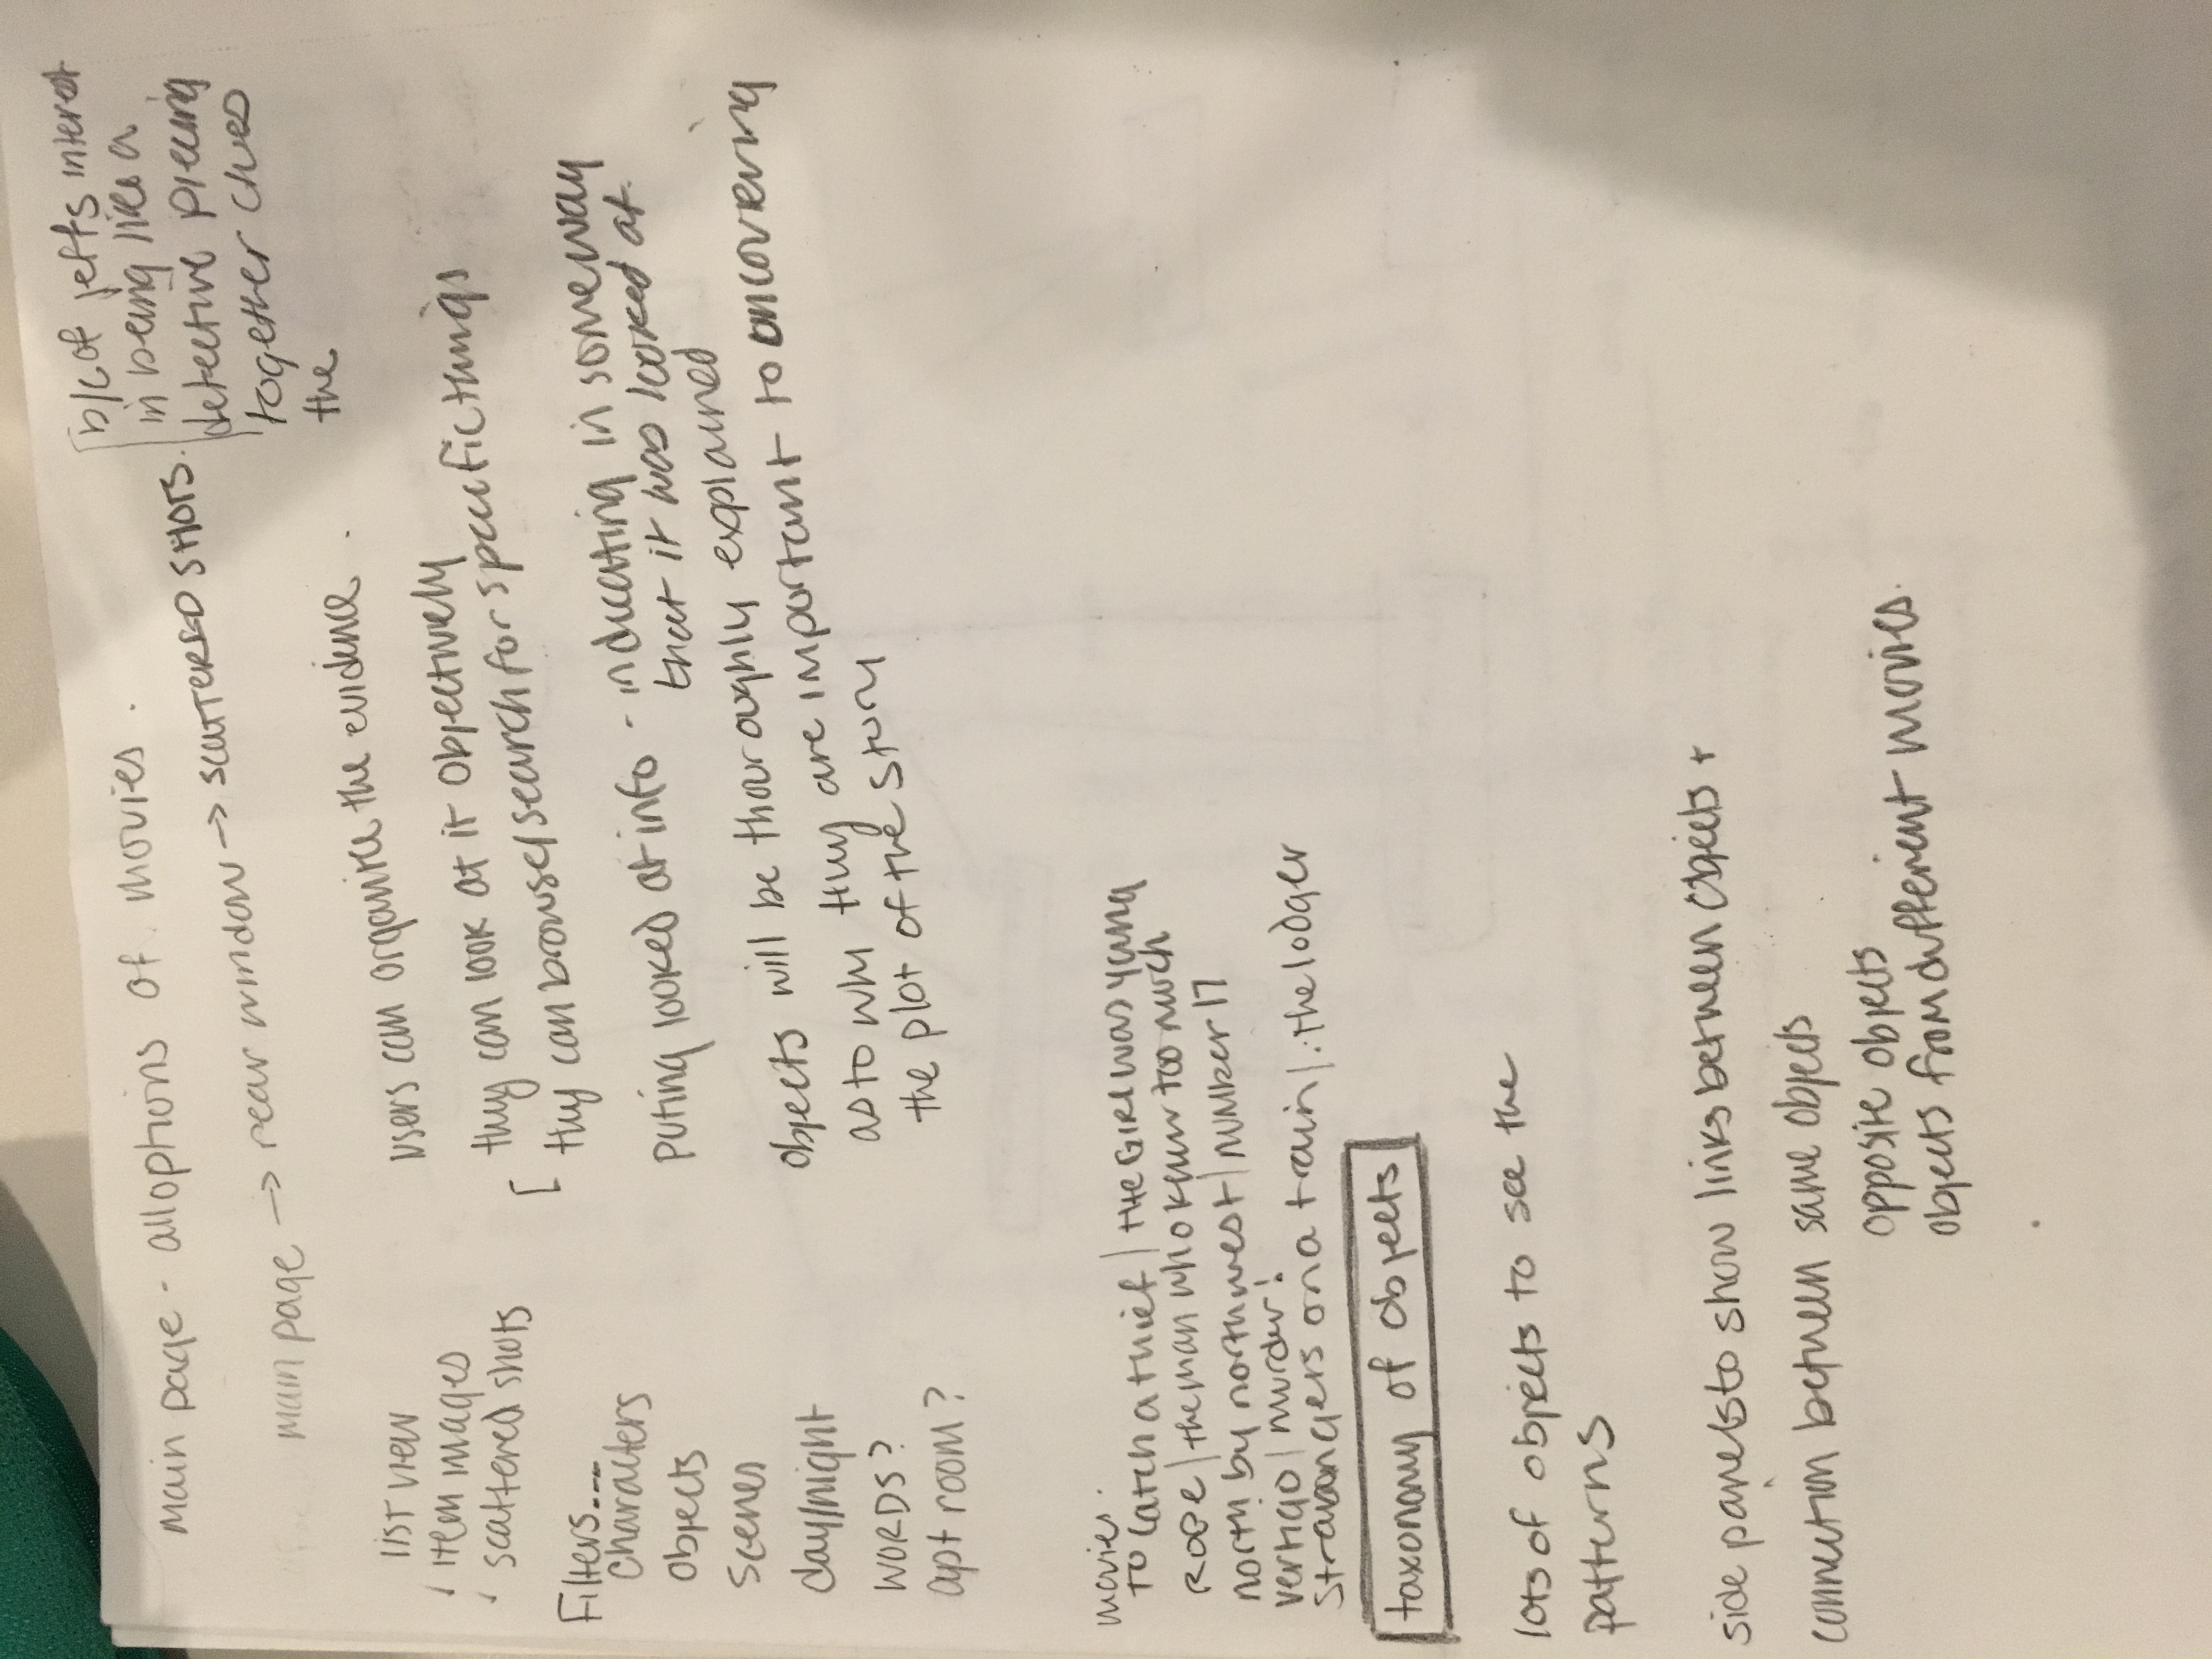 main page - all options of movies.
main page → rear window → SCATTERED SHOTS.
b/c of jeff's interest
in being like a
detective piecing
together clues
the
list view
✓ item images
✓ scattered shots
Filters...
Characters
Objects
Scenes
day/night
WORDS?
apt room?
users can organize the evidence.
they can look at it Objectively
[ they can browse/search for specific things
Puting looked at info - inducating in someway
that it was looked at.
Objects will be thouroughly explained
as to why they are important to uncovering
the plot of the story
movies.
TO Catch a thief / the GIRL was yung
ROPE / the man who knew too much
north by northwest / NUMber 17
vertigo / murder!
strangers on a train / the lodger
taxonomy of objects
lots of objects to see the
patterns
side panels to show links between objects +
connection between same objects
opposite objects
objects from different movies.